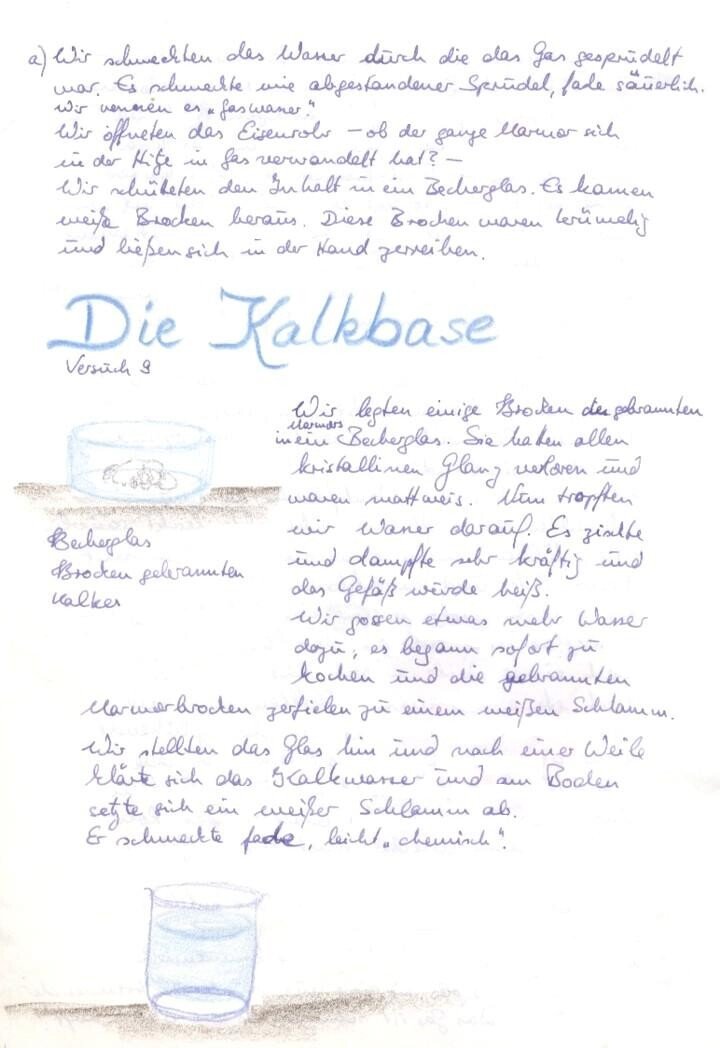 a) Wir schmeckten das Wasser durch die das Gas gesprudelt
war. Es schmeckte wie abgestandener Sprudel, fade säuerlich.
Wir nennen es „Gaswasser".
Wir öffneten das Eisenrohr – ob der ganze Marmor sich
in der Hitze in Gas verwandelt hat? –
Wir schütteten den Inhalt in ein Becherglas. Es kamen
weiße Brocken heraus. Diese Brocken waren krümelig
und ließen sich in der Hand zerreiben.
Die Kalkbase
Versuch 9
Wir legten einige Brocken des gebrannten
Marmors
in ein Becherglas. Sie hatten allen
kristallinen Glanz verloren und
waren mattweis. Nun tropften
wir Wasser darauf. Es zischte
und dampfte sehr kräftig und
das Gefäß wurde heiß.
Wir gossen etwas mehr Wasser
dazu, es begann sofort zu
kochen und die gebrannten
Marmorbrocken zerfielen zu einem weißen Schlamm.
Becherglas
Brocken gebrannten
Kalkes
Wir stellten das Glas hin und nach einer Weile
klärte sich das Kalkwasser und am Boden
setzte sich ein weißer Schlamm ab.
Er schmeckte fade, leicht „chemisch".